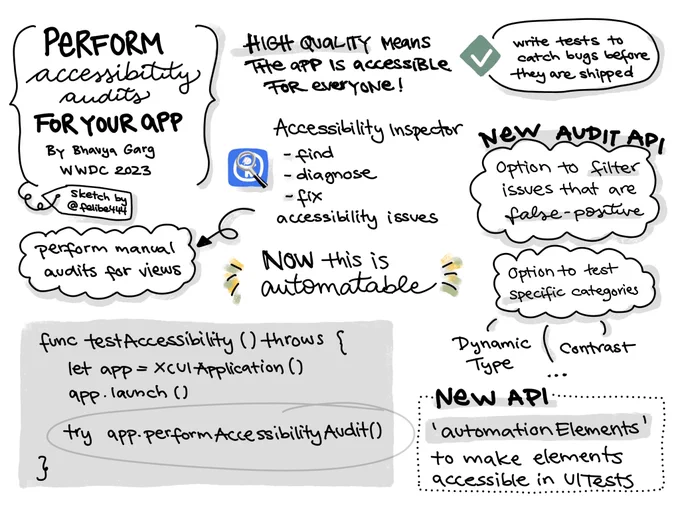 PERFORM
accessibility
audits
FOR YOUR APP
By Bhavya Garg
WWDC 2023
Sketch by
@felibe444
HIGH QUALITY MEANS
THE APP IS ACCESSIBLE
FOR EVERYONE!
write tests to
catch bugs before
they are shipped
Accessibility Inspector
- find
- diagnose
- fix
accessibility issues
perform manual
audits for views
NOW this is
automatable
NEW AUDIT API
Option to filter
issues that are
false-positive
Option to test
specific categories
Dynamic
Type
Contrast
...
func testAccessibility () throws {
let app = XCUIApplication ()
app.launch ()
try app.performAccessibilityAudit()
}
NEW API
'automationElements'
to make elements
accessible in UITests